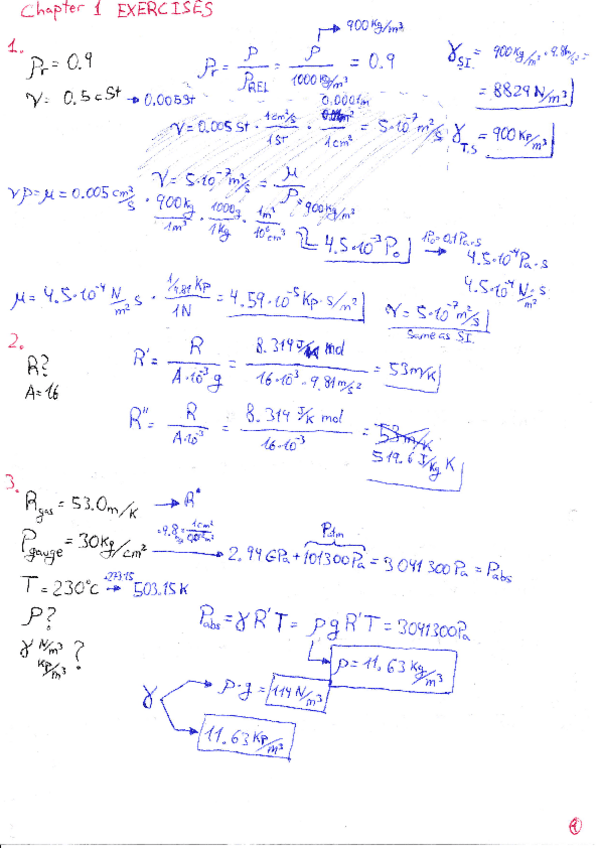 Chapter 1 EXERCISES
1.
ρr = 0.9
ρr = ρ/ρREL = ρ/1000 Kg/m³ = 0.9
→ 900 Kg/m³
γS.I. = 900 Kg/m³ · 9.81 m/s² =
= 8829 N/m³
γT.S = 900 Kp/m³
ν = 0.5 cSt → 0.005St
ν = 0.005 St · 1cm²/s/1St · 0.0001m²/1cm² = 5·10⁻⁷ m²/s
ν = 5·10⁻⁷ m²/s = μ/ρ = 900 Kg/m³
νρ = μ = 0.005 cm²/s · 900Kg/1m³ · 1000g/1Kg · 1m³/10⁶cm³
4.5·10⁻³ Po
1Po = 0.1Pa·s
→ 4.5·10⁻⁴ Pa·s
4.5·10⁻⁴ N/m² · s
μ = 4.5·10⁻⁴ N/m² s · 1/9.81 Kp/1N = 4.59·10⁻⁵ Kp·s/m²
ν = 5·10⁻⁷ m²/s
same as S.I.
2.
R?
A=16
R' = R/A·10⁻³ g = 8.314 J/K mol/16·10⁻³ · 9.81 m/s² = 53 m/K
R'' = R/A·10⁻³ = 8.314 J/K mol/16·10⁻³ = 53 m/K
519.6 J/Kg K
3.
Rgas = 53.0 m/K → R'
Pgauge = 30 Kg/cm² → 2.94 GPa + 101300Pa = 3041300 Pa = Pabs
Patm
T = 230°C +273.15 → 503.15 K
ρ?
γ N/m³ Kp/m³ ?
Pabs = γ R' T = ρ g R' T = 3041300 Pa
ρ = 11.63 Kg/m³
γ → ρ·g = 114 N/m³
11.63 Kp/m³
1